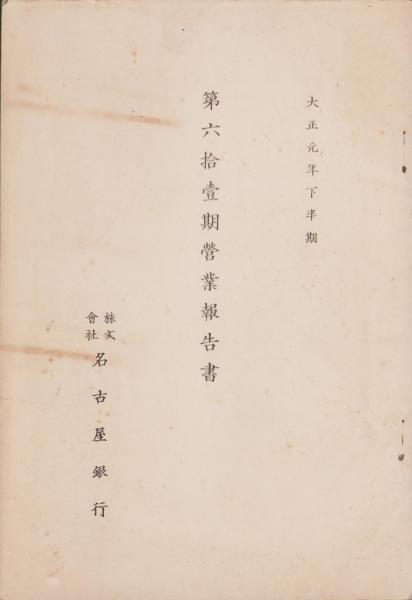 大正元年下半期
第六拾壹期營業報告書
株式會社名古屋銀行